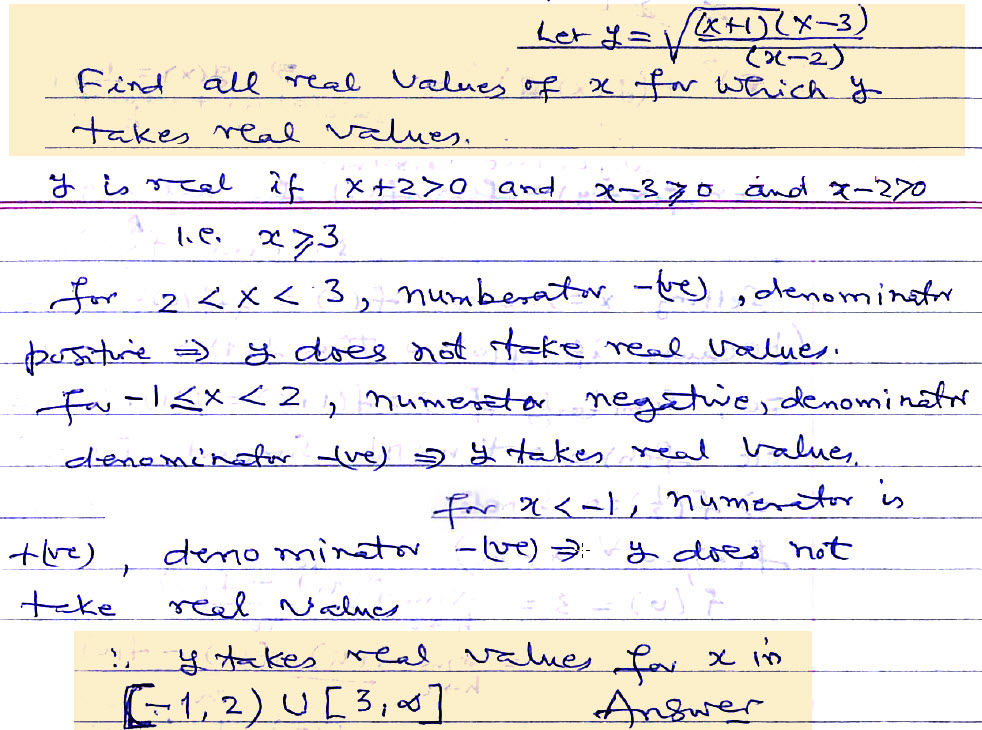 Let y = √((x+1)(x-3)/(x-2))
Find all real values of x for which y
takes real values.
y is real if x+2>0 and x-3⩾0 and x-2>0
i.e. x⩾3
for 2<x<3, numberator -(ve), denominator
positive ⇒ y does not take real values.
for -1≤x<2, numerator negative, denominatr
denominator -(ve) ⇒ y takes real values.
for x<-1, numerator is
+(ve), denominator -(ve) ⇒ y does not
take real values
∴ y takes real values for x in
[-1,2) ∪ [3,∞] Answer